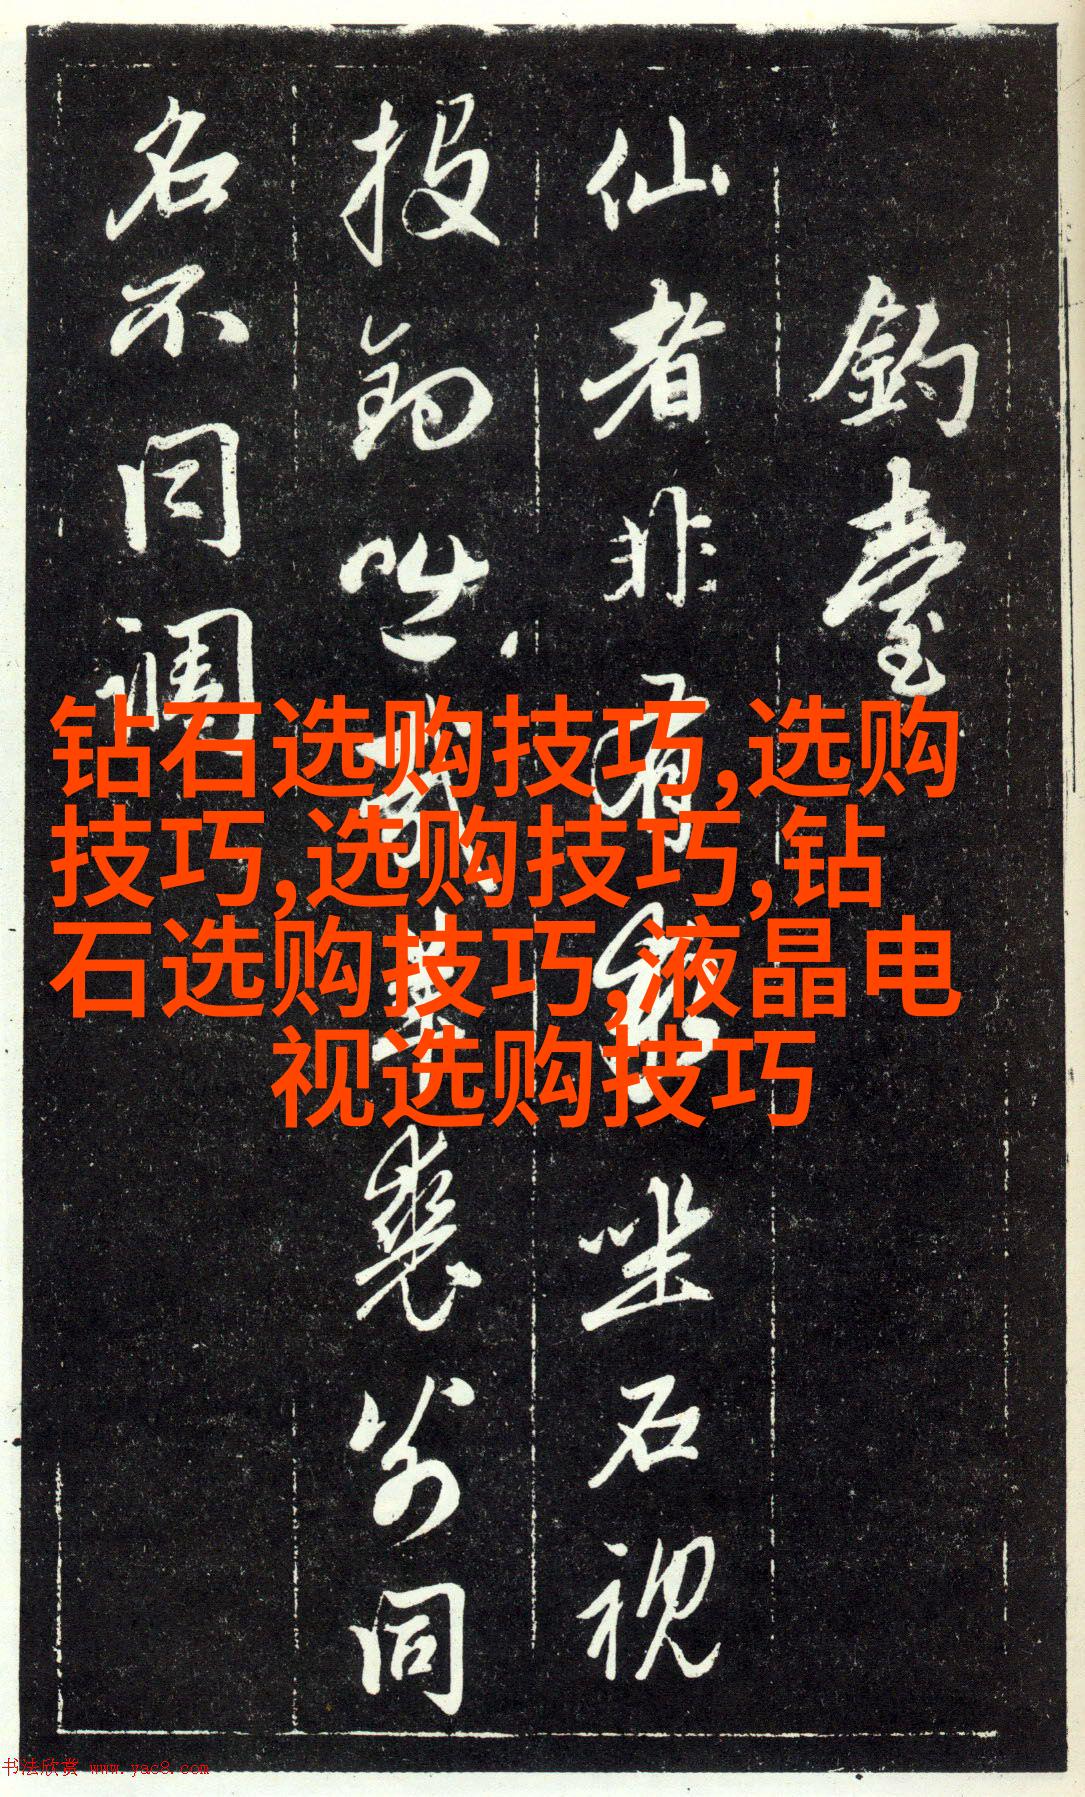 釣臺
仙者非有 坐石視
投釣 羊裘前同
名不同調
钻石选购技巧,选购
技巧,选购技巧,钻
石选购技巧,液晶电
视选购技巧
书法欣赏 www.yac8.com